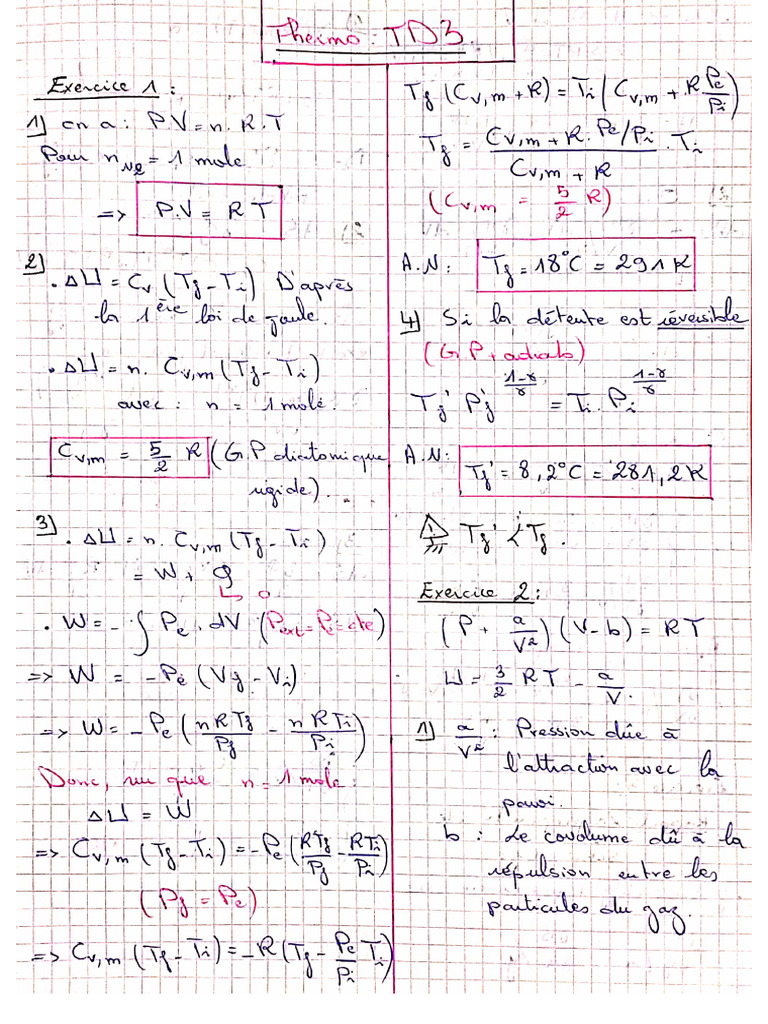 Thermo : TD3
Exercice 1 :
1) on a : P.V = n.R.T
Pour n_N2 = 1 mole
=> P.V = R T
2)
. ΔU = Cv (Tf - Ti) D'après
la 1ère loi de joule.
. ΔU = n. Cv,m (Tf - Ti)
avec : n = 1 mole.
Cv,m = 5/2 R (G.P diatomique
rigide).
3) . ΔU = n. Cv,m (Tf - Ti)
= W + Q
↳ 0
. W = - ∫ Pe . dV (Pext = Pe = cte)
=> W = -Pe (Vf - Vi)
=> W = -Pe (nRTf/Pf - nRTi/Pi)
Donc, vu que n = 1 mole :
ΔU = W
=> Cv,m (Tf - Ti) = -Pe (RTf/Pf - RTi/Pi)
(Pf = Pe)
=> Cv,m (Tf - Ti) = -R (Tf - Pe/Pi Ti)
Tf (Cv,m + R) = Ti (Cv,m + R Pe/Pi)
Tf = (Cv,m + R. Pe/Pi)/(Cv,m + R) . Ti
(Cv,m = 5/2 R)
A.N : Tf = 18°C = 291 K
4) Si la détente est réversible
(G P + adiab)
Tf' Pf'^((1-γ)/γ) = Ti . Pi^((1-γ)/γ)
A.N : Tf' = 8,2°C = 281,2 K
⚠ Tf' < Tf .
Exercice 2 :
(P + a/V²) (V - b) = RT
U = 3/2 RT - a/V.
1) a/V² : Pression dûe à
l'attraction avec la
paroi.
b : Le covolume dû à la
répulsion entre les
particules du gaz.